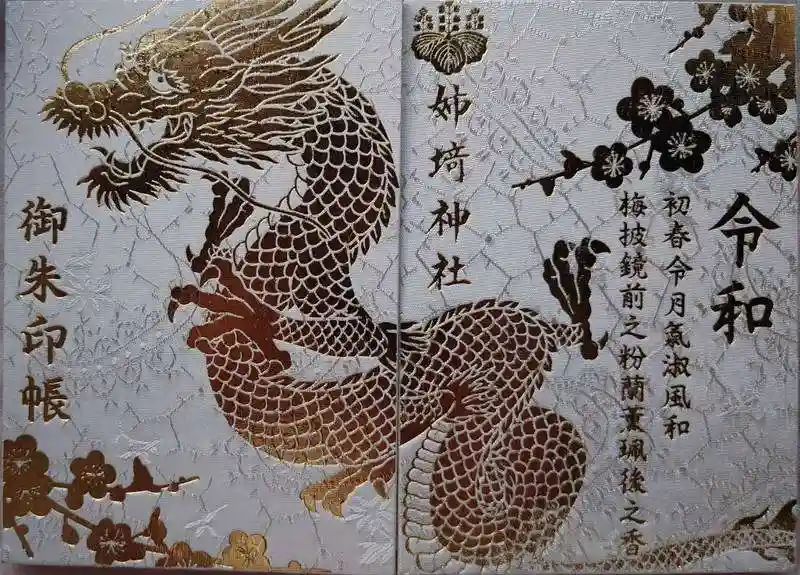 令和
初春令月氣淑風和
梅披鏡前之粉蘭薫珮後之香
姉埼神社
御朱印帳